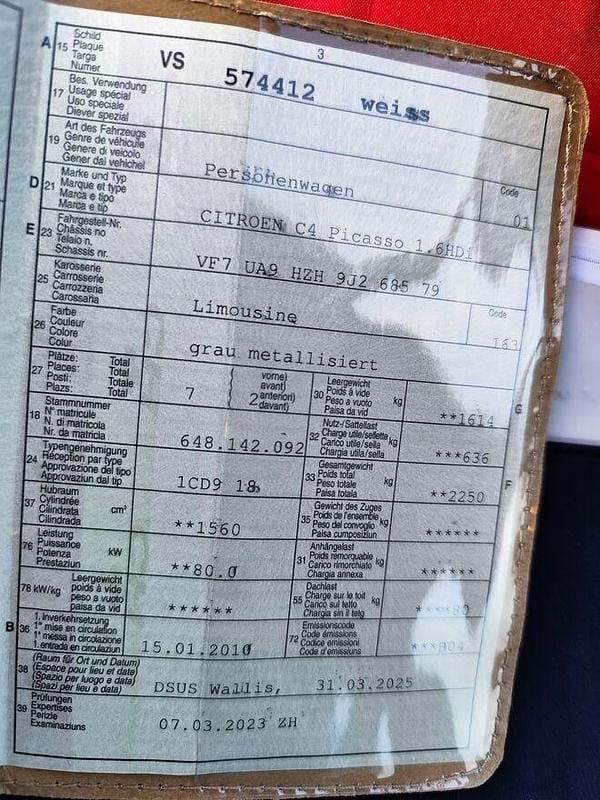 3
A 15 Schild
Plaque
Targa
Numer
VS 574412 weiss
17 Bes. Verwendung
Usage spécial
Uso speciale
Diever spezial
19 Art des Fahrzeugs
Genre de véhicule
Genere di veicolo
Gener dal vehichel
Personenwagen
Code
01
D 21 Marke und Typ
Marque et type
Marca e tipo
Marca e tip
CITROEN C4 Picasso 1.6HDi
E 23 Fahrgestell-Nr.
Châssis no
Telaio n.
Schassis nr.
VF7 UA9 HZH 9J2 685 79
25 Karosserie
Carrosserie
Carrozzeria
Carossaria
Limousine
Code
163
26 Farbe
Couleur
Colore
Colur
grau metallisiert
27 Plätze: Total
Places: Total
Posti: Totale
Plazs: Total
7
2
vorne)
avant)
anteriori)
davant)
30 Leergewicht
Poids à vide
Peso a vuoto
Paisa da vid
kg
**1614
G
18 Stammnummer
N° matricule
N. di matricola
Nr. da matricla
648.142.092
32 Nutz-/Sattellast
Charge utile/sellette
Carico utile/sella
Chargia utila/sella
kg
***636
24 Typengenehmigung
Réception par type
Approvazione del tipo
Approvaziun dal tip
1CD9 18
33 Gesamtgewicht
Poids total
Peso totale
Paisa totala
kg
**2250
F
37 Hubraum
Cylindrée
Cilindrata
Cilindrada
cm³
**1560
35 Gewicht des Zuges
Poids de l'ensemble
Peso del convoglio
Paisa cumposiziun
kg
******
76 Leistung
Puissance
Potenza
Prestaziun
kW
**80.0
31 Anhängelast
Poids remorquable
Carico rimorchiato
Chargia annexa
kg
******
78 kW/kg Leergewicht
poids à vide
peso a vuoto
paisa da vid
******
55 Dachlast
Charge sur le toit
Carico sul tetto
Chargia sin il tetg
kg
****80
B 36 1. Inverkehrsetzung
1re mise en circulation
1a messa in circolazione
1. entrada en circulaziun
15.01.2010
72 Emissionscode
Code émissions
Codice emissioni
Code d'emissiuns
***B04
38 (Raum für Ort und Datum)
(Espace pour lieu et date)
(Spazio per luogo e data)
(Spazi per lieu e data)
DSUS Wallis, 31.03.2025
39 Prüfungen
Expertises
Perizie
Examinaziuns
07.03.2023 ZH